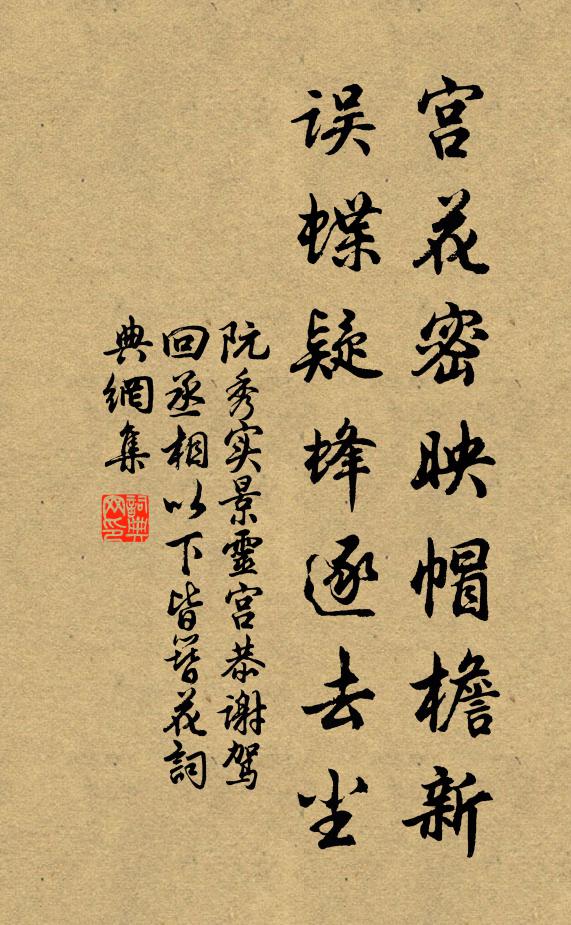 宫花密映帽檐新
误蝶疑蜂逐去尘
阮秀实景靈宫恭谢驾
回丞相以下皆簪花詞
典網集
詞典网印